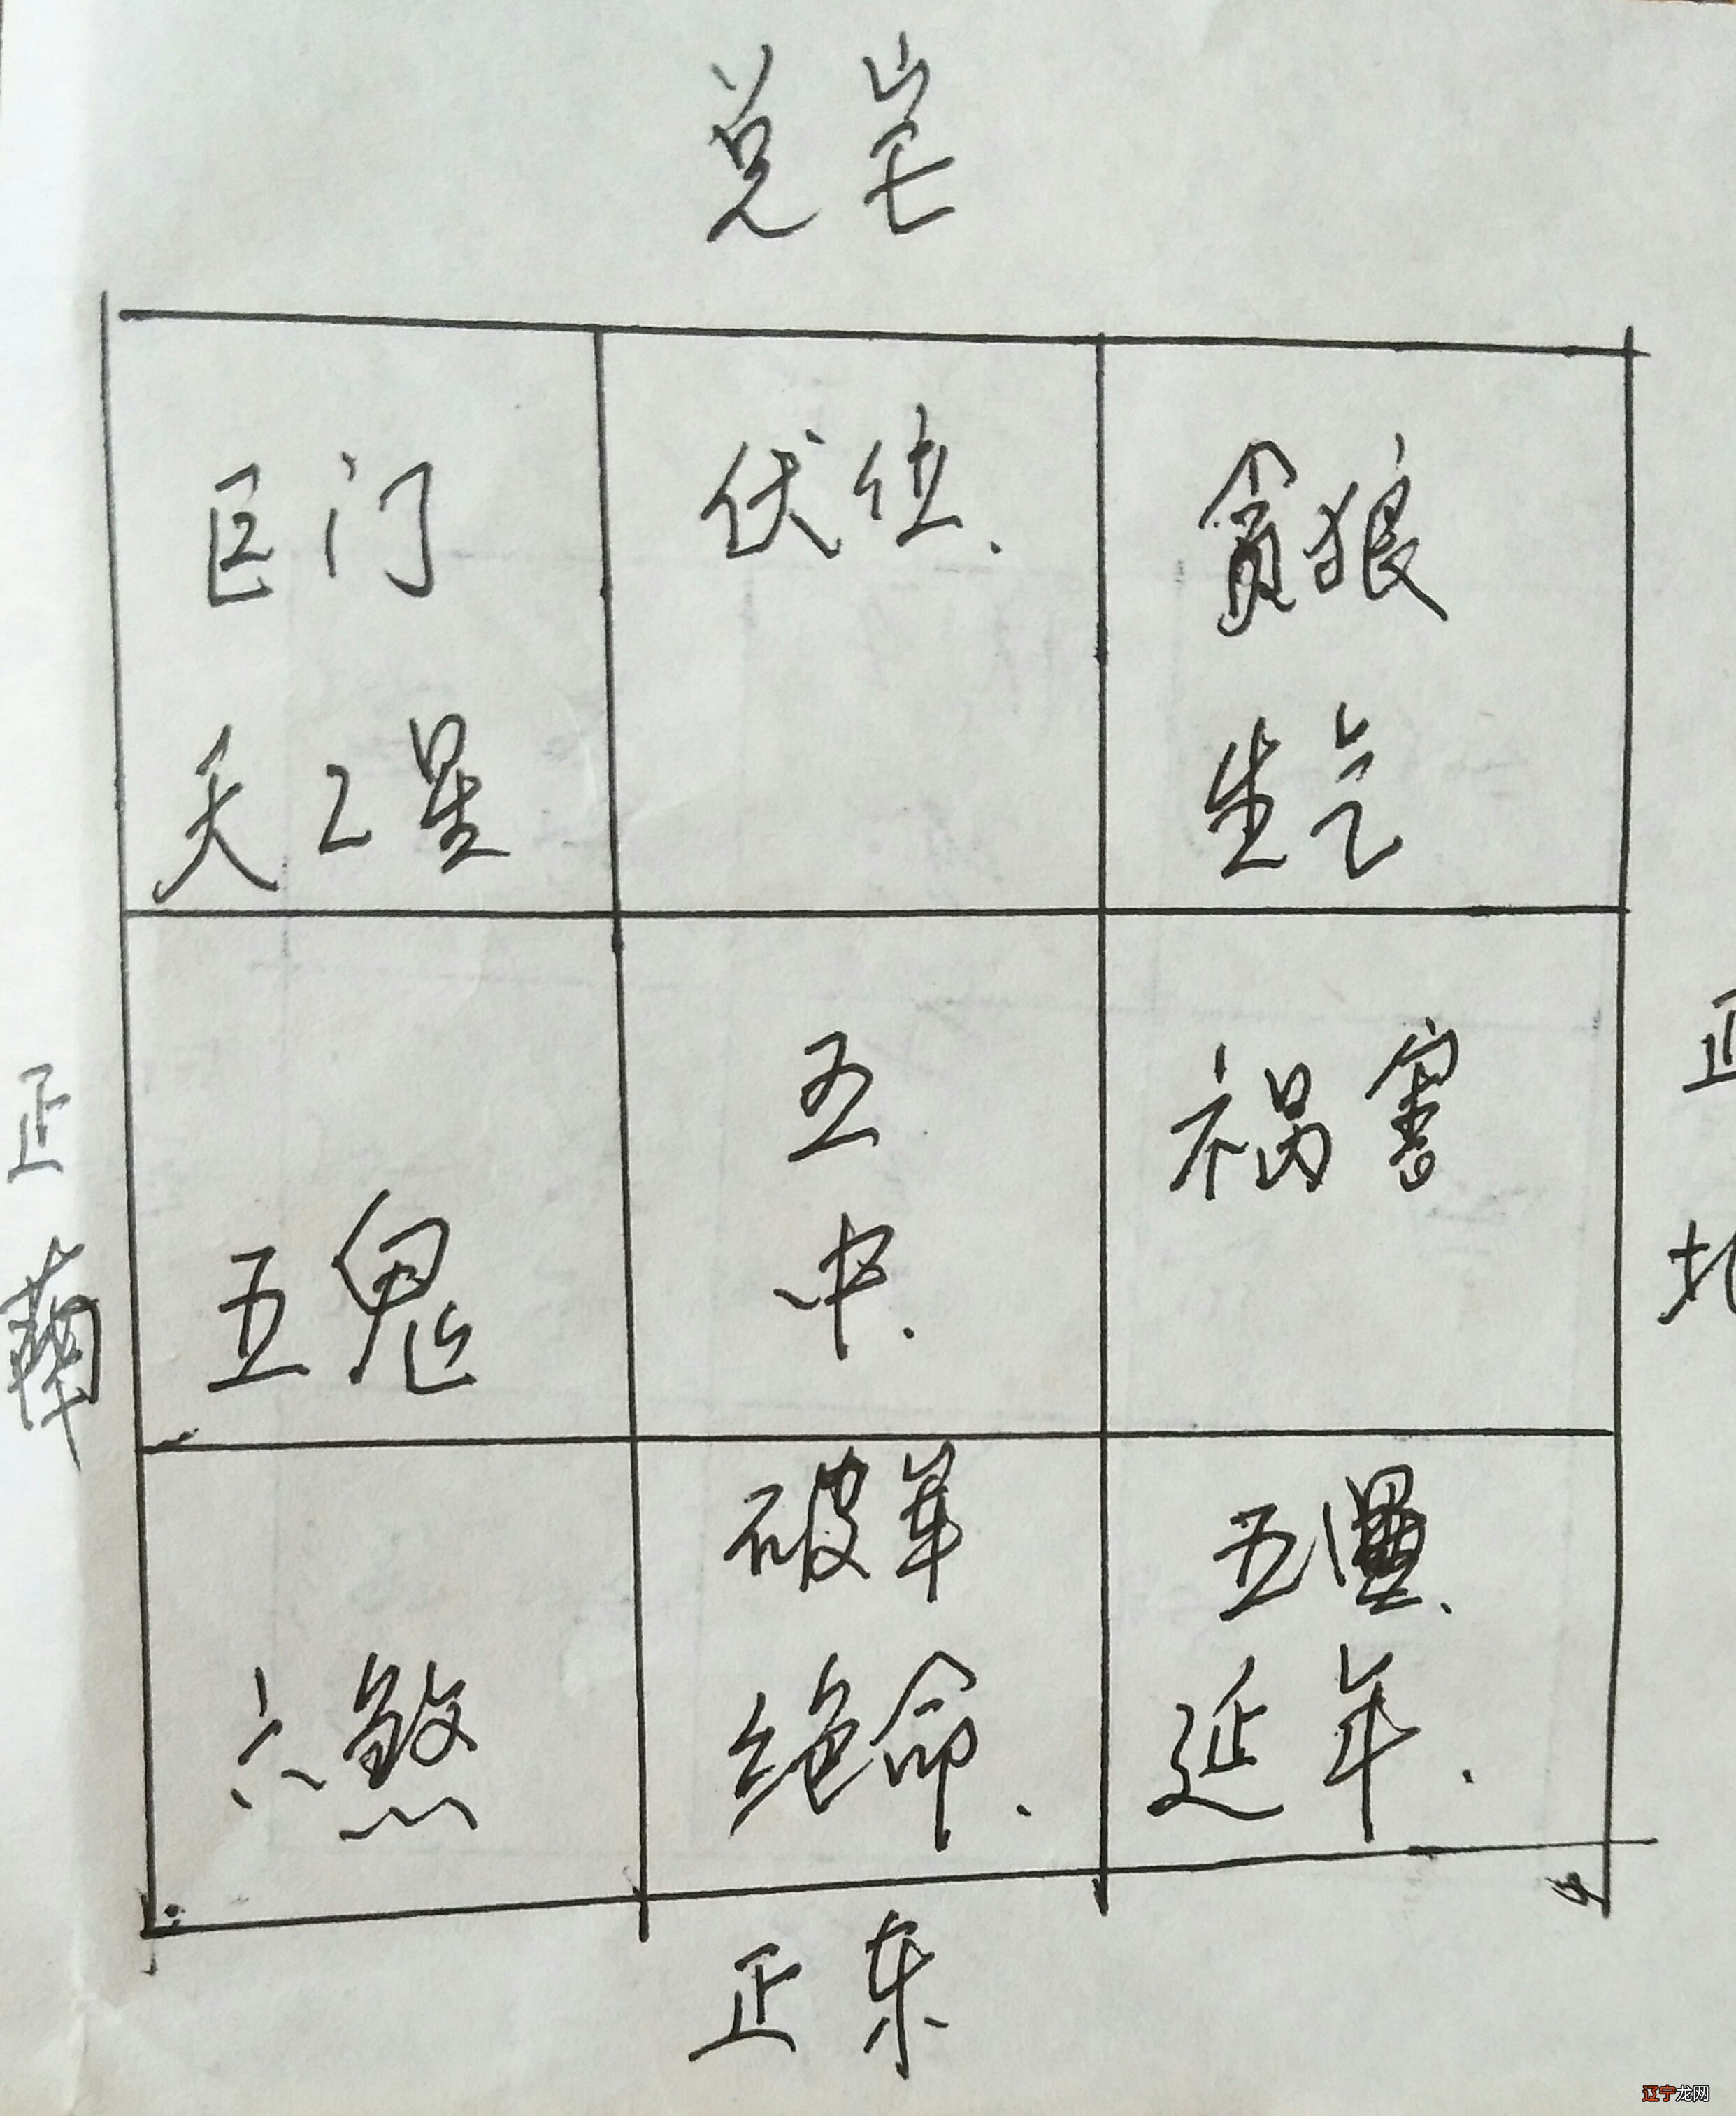 兑宅
巨门
天乙星
伏位.
贪狼
生气
正南
五鬼
五
中.
祸害
正北
六煞
破军
绝命.
五
延年.
正东
辽宁龙网